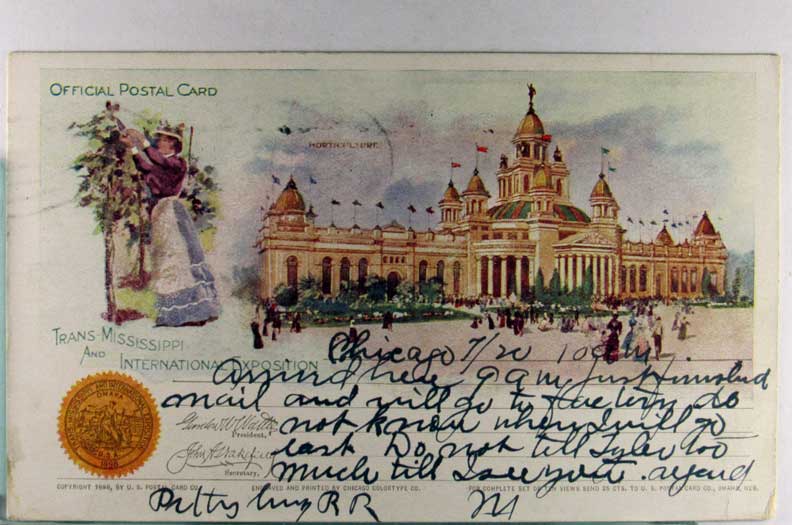 OFFICIAL POSTAL CARD
HORTICULTURE
TRANS-MISSISSIPPI
AND INTERNATIONAL EXPOSITION
Chicago 7/20 10 am.
Arrived here 9 am Just finished
mail and will go to factory. do
not know when I will go
east. Do not tell Tyler too
much till I see you.
Pittsburg RR
OMAHA
U.S.A.
1898
President,
Secretary.
COPYRIGHT 1898, BY U. S. POSTAL CARD CO.
ENGRAVED AND PRINTED BY CHICAGO COLORTYPE CO.
FOR COMPLETE SET OF TEN VIEWS SEND 25 CTS. TO U. S. POSTAL CARD CO., OMAHA, NEB.